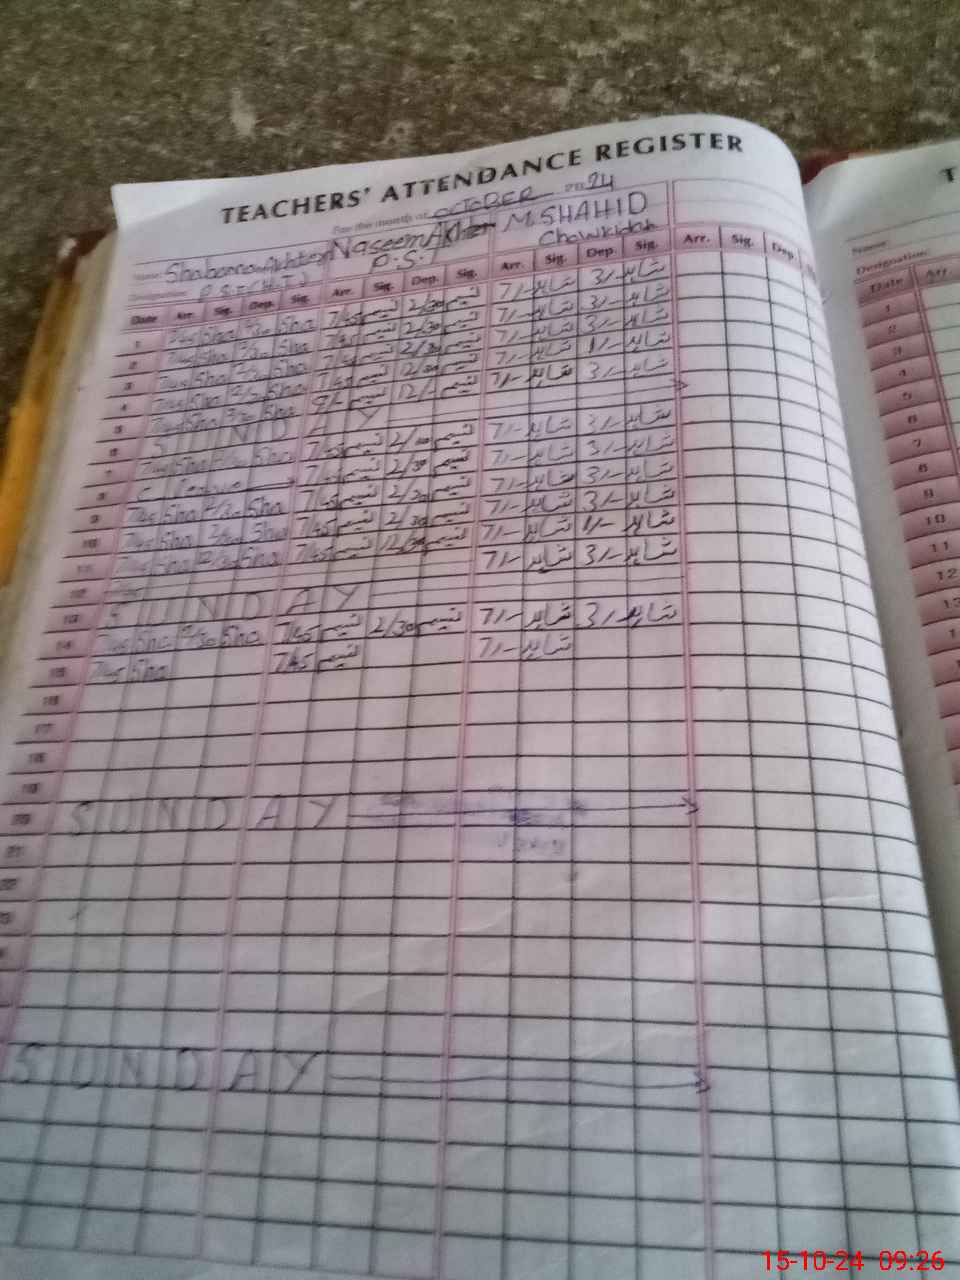 TEACHERS' ATTENDANCE REGISTER
For the month of OCTOBER 2024
Name Shabana Akhter Naseem Akhter M.SHAHID
Designation P.S.T (H.T) P.S.T Chowkidar
Date Arr. Sig. Dep. Sig. Arr. Sig. Dep. Sig. Arr. Sig. Dep. Sig. Arr. Sig. Dep.
1 7/45 Sha 2/30 Sha 7/45 نسیم 2/30 نسیم 7/- شاہد 3/- شاہد
2 7/45 Sha 2/30 Sha 7/45 نسیم 2/30 نسیم 7/- شاہد 3/- شاہد
3 7/45 Sha 2/30 Sha 7/45 نسیم 2/30 نسیم 7/- شاہد 3/- شاہد
4 7/45 Sha 12/30 Sha 7/45 نسیم 12/30 نسیم 7/- شاہد 1/- شاہد
5 7/45 Sha 2/30 Sha 9/- نسیم 12/- نسیم 7/- شاہد 3/- شاہد
6 SUNDAY
7 7/45 Sha 2/30 Sha 7/45 نسیم 2/30 نسیم 7/- شاہد 3/- شاہد
8 C. leave 7/45 نسیم 2/30 نسیم 7/- شاہد 3/- شاہد
9 7/45 Sha 2/30 Sha 7/45 نسیم 2/30 نسیم 7/- شاہد 3/- شاہد
10 7/45 Sha 2/30 Sha 7/45 نسیم 2/30 نسیم 7/- شاہد 3/- شاہد
11 7/45 Sha 12/30 Sha 7/45 نسیم 12/30 نسیم 7/- شاہد 1/- شاہد
12 7/- شاہد 3/- شاہد
13 SUNDAY
14 7/45 Sha 2/30 Sha 7/45 نسیم 2/30 نسیم 7/- شاہد 3/- شاہد
15 7/45 Sha 7/45 نسیم 7/- شاہد
16
17
18
19
20 SUNDAY
21
22
23
SUNDAY
T
Name:
Designation:
Date Arr.
1
2
3
4
5
6
7
8
9
10
11
12
13
15-10-24 09:26